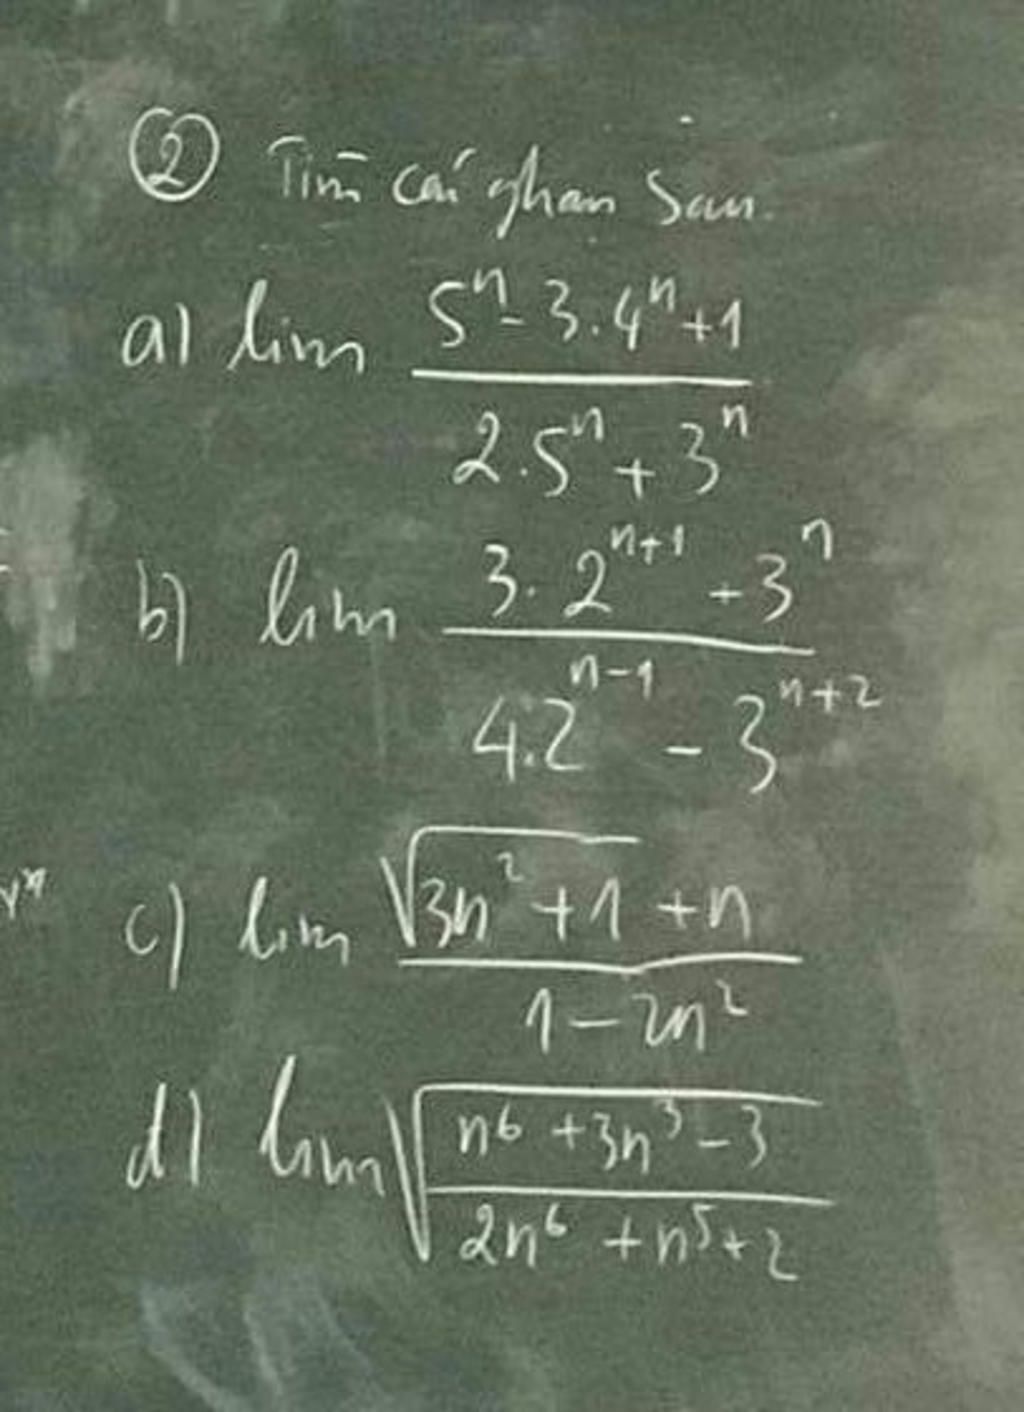 ② Tìm các ghạn sau.
a) lim \frac{5^n - 3.4^n + 1}{2.5^n + 3^n}
b) lim \frac{3.2^{n+1} + 3^n}{4.2^{n-1} - 3^{n+2}}
c) lim \frac{\sqrt{3n^2 + 1} + n}{1 - 2n^2}
d) lim \sqrt{\frac{n^6 + 3n^3 - 3}{2n^6 + n^5 + 2}}